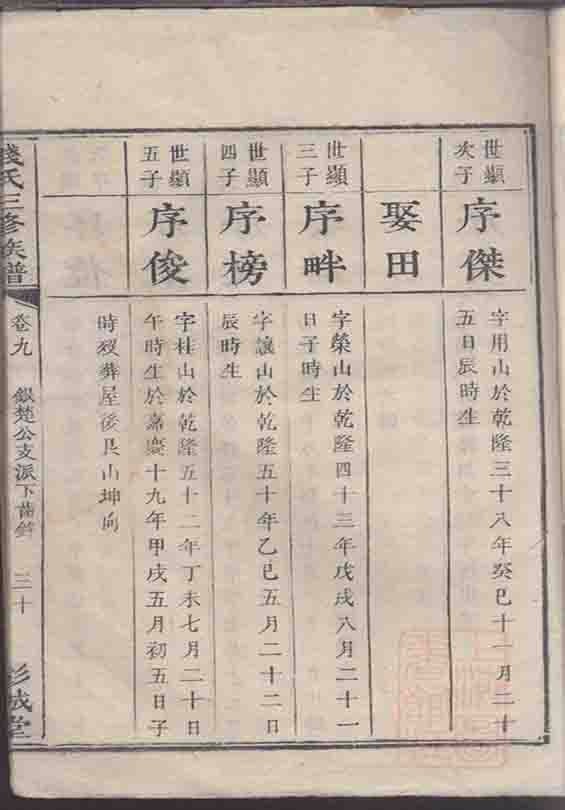 世顯
次子
序傑
字用山於乾隆三十八年癸巳十一月二十
五日辰時生
娶田
世顯
三子
序畔
字榮山於乾隆四十三年戊戌八月二十一
日子時生
世顯
四子
序榜
字讓山於乾隆五十年乙巳五月二十二日
辰時生
世顯
五子
序俊
字桂山於乾隆五十二年丁未七月二十日
午時生於嘉慶十九年甲戌五月初五日子
時歿葬屋後艮山坤向
錢氏三修族譜
卷九
銀楚公支派下齒錄
三十
彭城堂